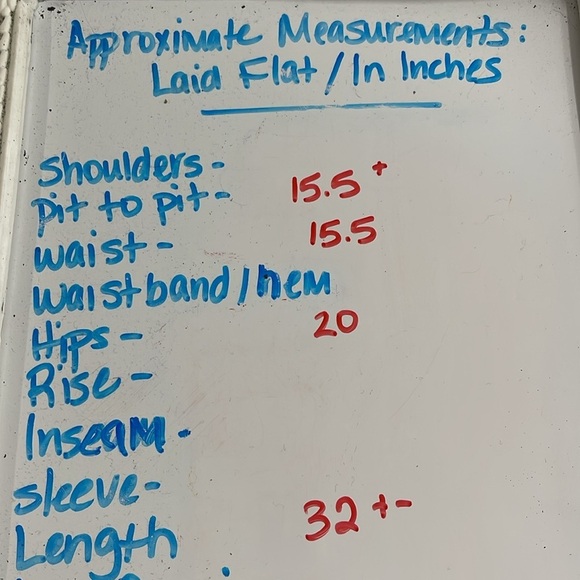 Approximate Measurements:
Laid Flat / In Inches
Shoulders -
pit to pit - 15.5 +
waist - 15.5
waistband / hem
Hips - 20
Rise -
Inseam -
sleeve -
Length 32 + -